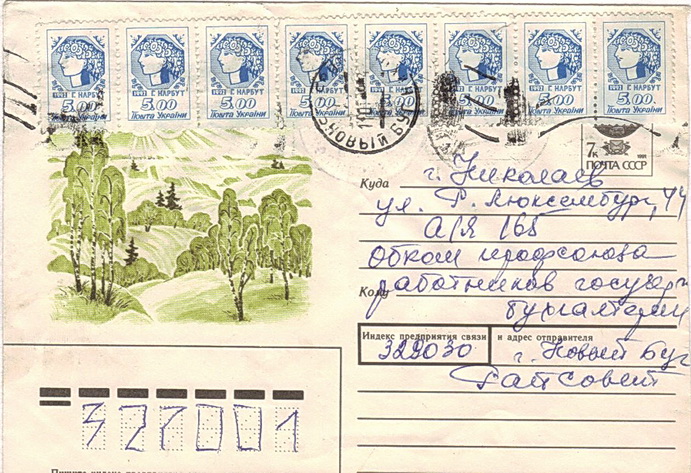 1992 С. НАРБУТ 1992 С. НАРБУТ 1992 С. НАРБУТ 1992 С. НАРБУТ 1992 С. НАРБУТ 1992 С. НАРБУТ 1992 С. НАРБУТ 1992 С. НАРБУТ
5.00 5.00 5.00 5.00 5.00 5.00 5.00 5.00
Пошта України Пошта України Пошта України Пошта України Пошта України Пошта України Пошта України Пошта України
НОВЫЙ БУГ
7к
ПОЧТА СССР
Куда г. Николаев
ул. Р. Люксембург, 44
А/Я 165
Обком профсоюза
работников госучр
Кому
бухгалтерии
Индекс предприятия связи и адрес отправителя
329030 г. Новый Буг
Райсовет
327001